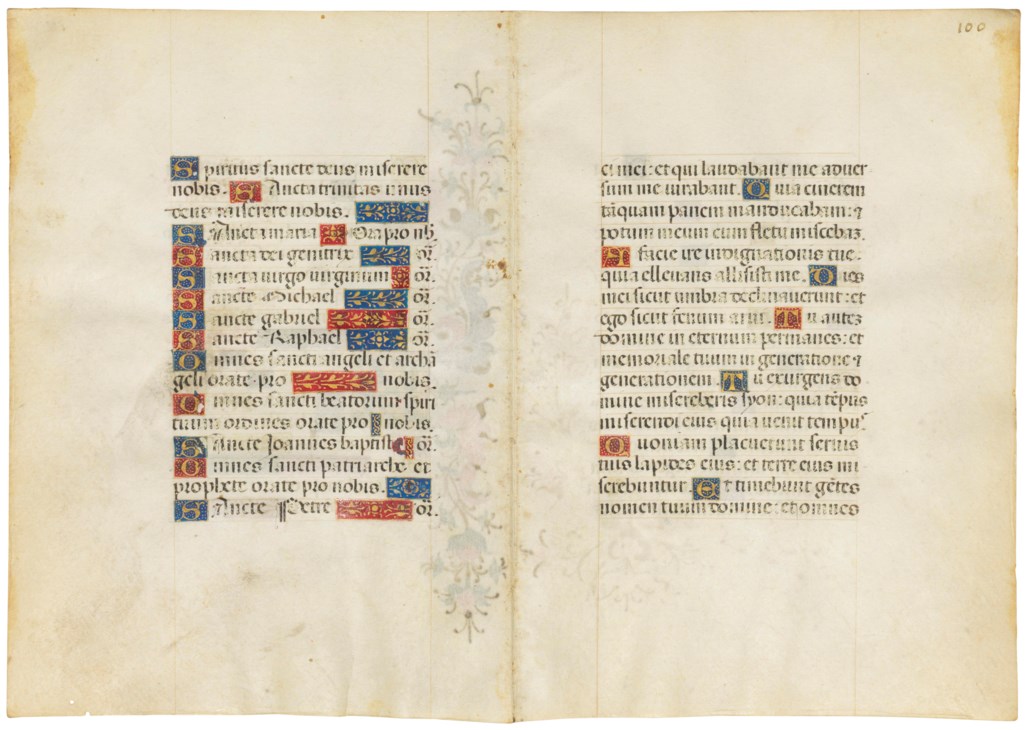 Spiritus sancte deus miserere
nobis. SAncta trinitas unus
deus miserere nobis.
SAncta maria Ora pro nb̄.
Sancta dei genitrix or̄.
Sancta virgo virginum or̄.
Sancte Michael or̄.
Sancte gabriel or̄.
Sancte Raphael or̄.
Omnes sancti angeli et archā
geli orate pro nobis.
Omnes sancti beatorum spiri
tuum ordines orate pro nobis.
SAncte Joannes baptista or̄.
Omnes sancti patriarche et
prophete orate pro nobis.
SAncte Petre or̄.
100
ei mei: et qui laudabant me adver
sum me iurabant. Quia cinerem
tāquam panem manducabam: et
potum meum cum fletu miscebaz.
A facie ire indignationis tue:
quia elevans allisisti me. Dies
mei sicut umbra declinaverunt: et
ego sicut fenum arui. Tu autez
domine in eternum permanes: et
memoriale tuum in generatione et
generationem. Tu exurgens do
mine misereberis syon: quia tēpus
miserendi eius quia venit tempus.
Quoniam placuerunt servis
tuis lapides eius: et terre eius mi
serebuntur. Et timebunt gētes
nomen tuum domine: et omnes